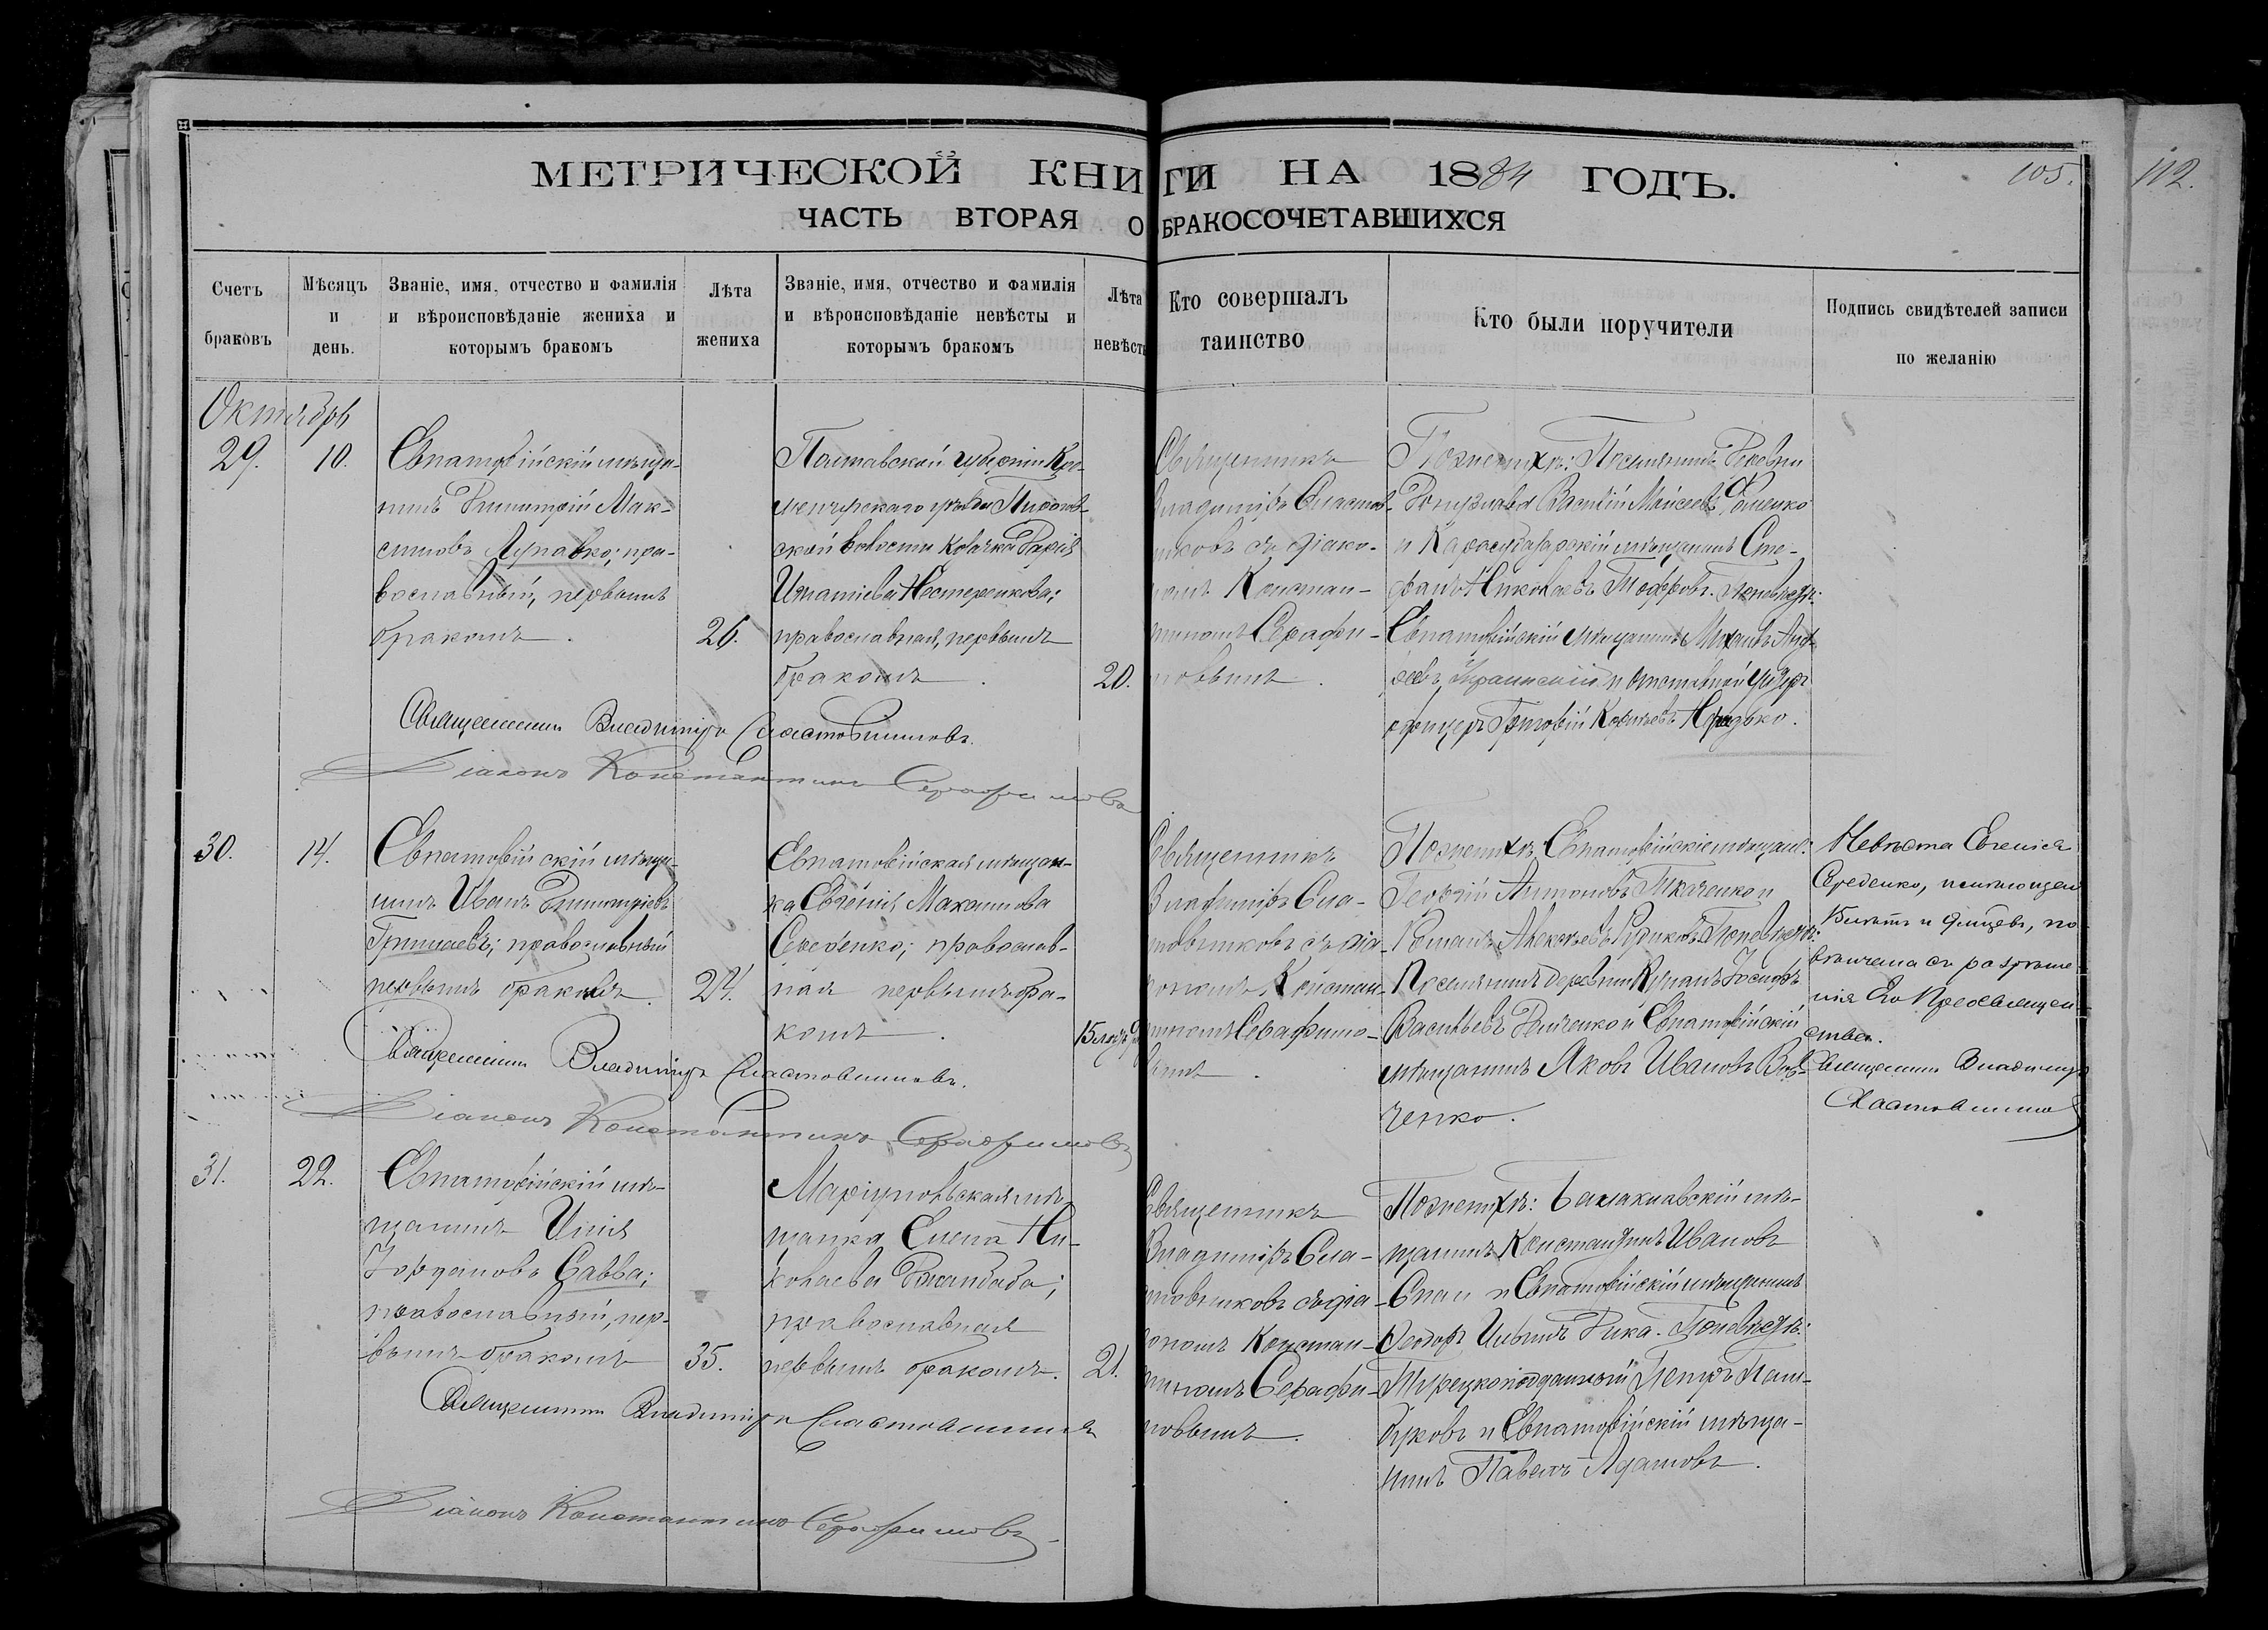 МЕТРИЧЕСКОЙ КНИГИ НА 1884 ГОДЪ.
105.
112.
ЧАСТЬ ВТОРАЯ О БРАКОСОЧЕТАВШИХСЯ
Счетъ
браковъ
Мѣсяцъ
и
день.
Званіе, имя, отчество и фамилія
и вѣроисповѣданіе жениха и
которымъ бракомъ
Лѣта
жениха
Званіе, имя, отчество и фамилія
и вѣроисповѣданіе невѣсты и
которымъ бракомъ
Лѣта
невѣсты
Кто совершалъ
таинство
Кто были поручители
Подпись свидѣтелей записи
по желанію
Октябрь
29.
10.
Евпаторійскій мѣща-
нинъ Димитрій Мак-
симовъ Журавко; пра-
вославный, первымъ
бракомъ.
26.
Полтавской губерніи Кре-
менчугскаго уѣзда
ской волости козачка Дарія
Игнатіева Нестеренкова;
православная, первымъ
бракомъ.
20.
Священникъ
Владиміръ Сластов-
никовъ съ діако-
номъ Констан-
тиномъ Серафи-
мовымъ.
По женихѣ: Поселянинъ деревни
Василій Моисеевъ Фоменко
и Карасубазарскій мѣщанинъ Сте-
фанъ Николаевъ По невѣстѣ:
Евпаторійскій мѣщанинъ Михаилъ Анд-
реевъ Украинскій и отставной унтеръ
офицеръ Григорій
Священникъ Владиміръ Сластовниковъ.
Діаконъ Константинъ Серафимовъ
30.
14.
Евпаторійскій мѣща-
нинъ Иванъ Димитріевъ
православный
первымъ бракомъ.
24.
Евпаторійская мѣщан-
ка Евгенія Максимова
Середенко; православ-
ная первымъ бра-
комъ.
15 лѣтъ
Священникъ
Владиміръ Сла-
стовниковъ съ діа-
кономъ Констан-
тиномъ Серафимо-
вымъ.
По женихѣ: Евпаторійскіе мѣщане:
Георгій Антоновъ Ткаченко и
Романъ Алексѣевъ По невѣстѣ:
Поселянинъ деревни Іосифъ
Васильевъ и Евпаторійскій
мѣщанинъ Яковъ Ивановъ Вов-
ченко.
Невѣста Евгенія
Середенко, неимѣющая
по-
вѣнчана съ разрѣше
нія Его Преосвящен
ства.
Священникъ Владиміръ
Сластовниковъ
Священникъ Владиміръ Сластовниковъ.
Діаконъ Константинъ Серафимовъ
31.
22.
Евпаторійскій мѣ-
щанинъ Илія
Іордановъ Савва;
православный, пер-
вымъ бракомъ
35.
Маріупольская мѣ-
щанка Елена Ни-
колаева Джанбаба;
православная
первымъ бракомъ.
21.
Священникъ
Владиміръ Сла-
стовниковъ съ діа-
кономъ Констан-
тиномъ Серафи-
мовымъ.
По женихѣ: Балаклавскій мѣ-
щанинъ Константинъ Ивановъ
Спаи и Евпаторійскій мѣщанинъ
Ѳеодоръ Ильинъ По невѣстѣ:
Турецкоподданный Петръ
и Евпаторійскій мѣща-
нинъ Павелъ Адамовъ.
Священникъ Владиміръ Сластовниковъ
Діаконъ Константинъ Серафимовъ